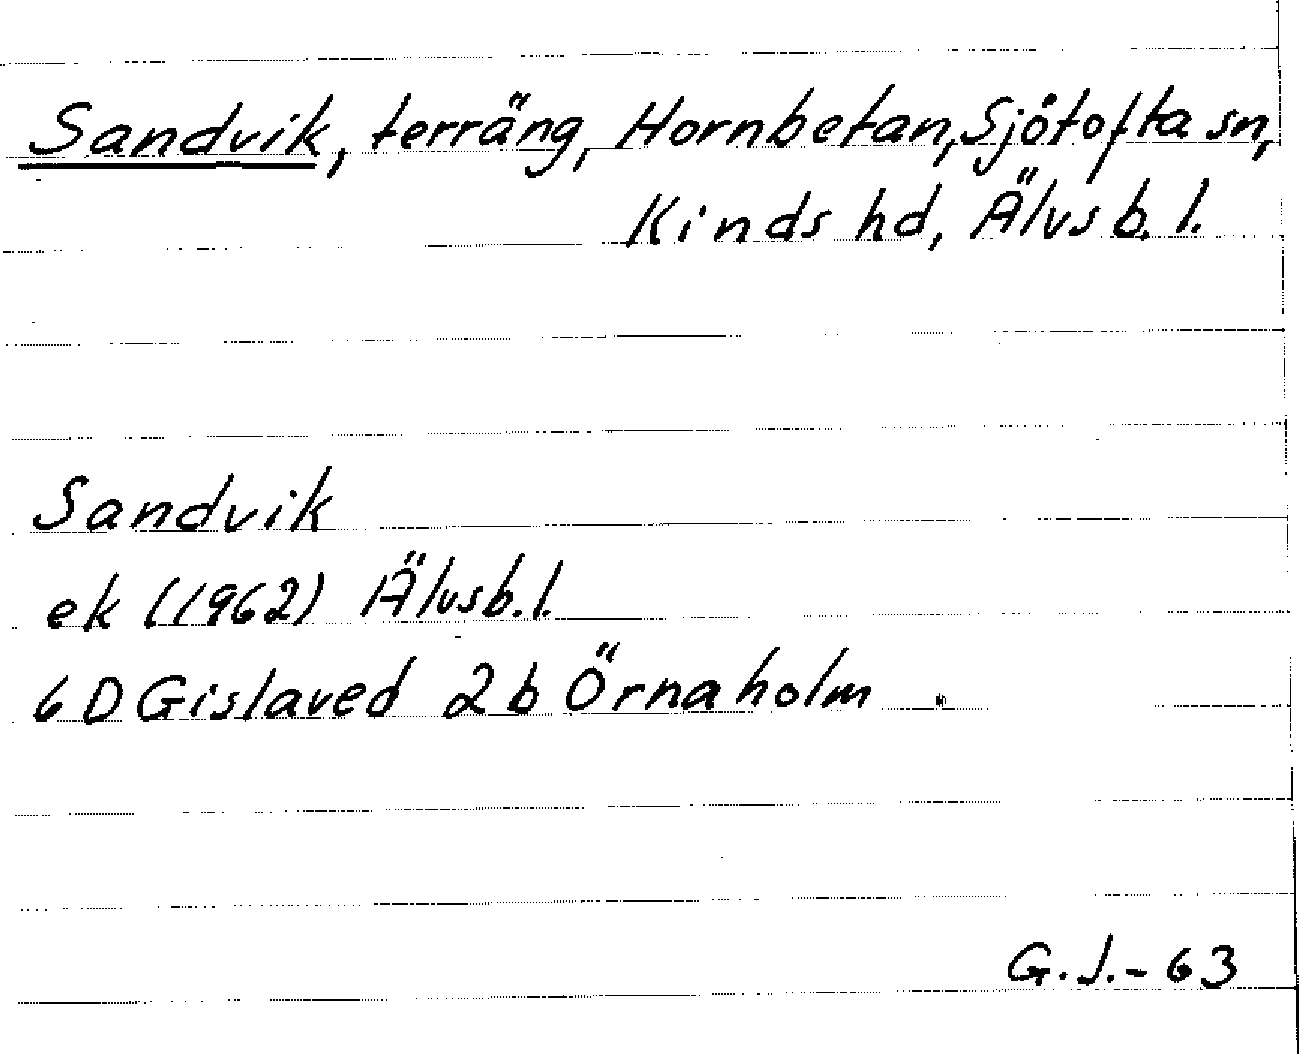 Sandvik, terräng, Hornbetan, Sjötofta sn,
Kinds hd, Älvsb. l.
Sandvik
ek (1962) Älvsb. l.
6 D Gislaved 2 b Örnaholm.
G. J. - 63